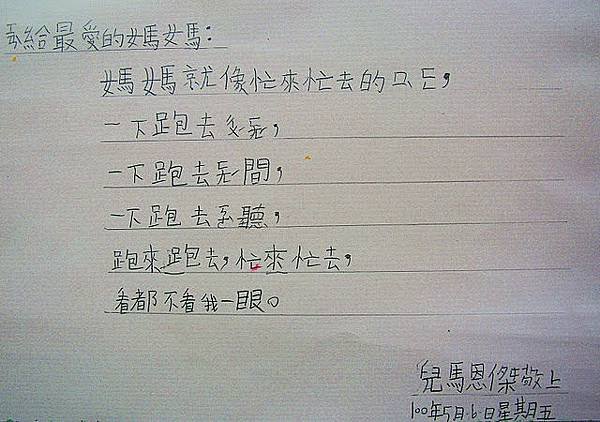 給最愛的媽媽:
媽媽就像忙來忙去的,
一下跑去,
一下跑去間,
一下跑去聽,
跑來跑去,忙來忙去,
看都不看我一眼。
兒馬恩傑敬上
100年5月6日星期五